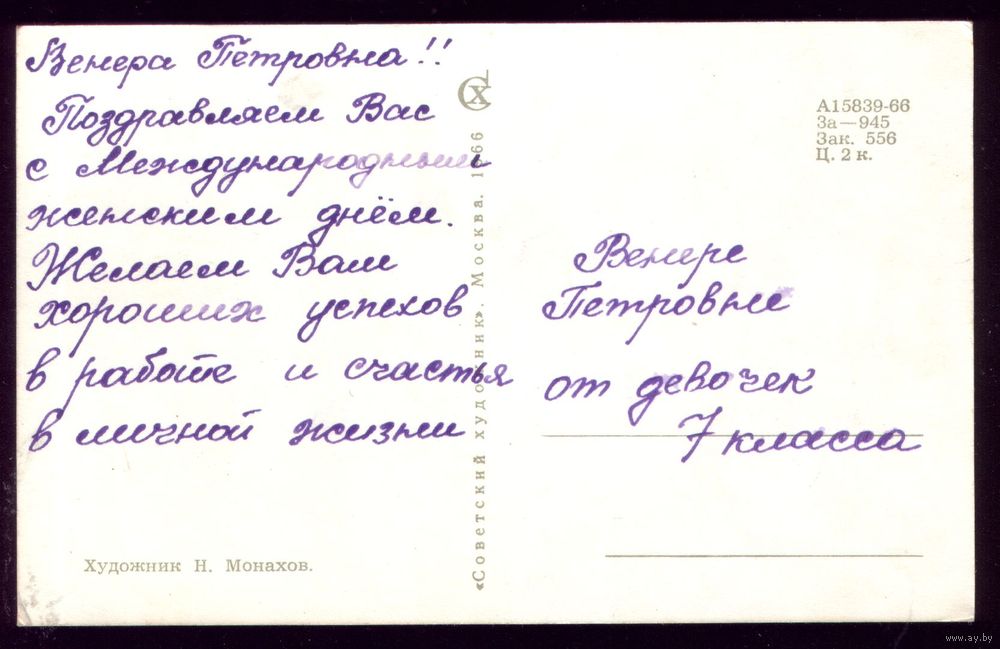 Венера Петровна!!
Поздравляем Вас
с Международным
женским днём.
Желаем Вам
хороших успехов
в работе и счастья
в личной жизни
Художник Н. Монахов.
«Советский художник». Москва. 1966
СХ
А15839-66
За—945
Зак. 556
Ц. 2 к.
Венере
Петровне
от девочек
7 класса
www.ay.by